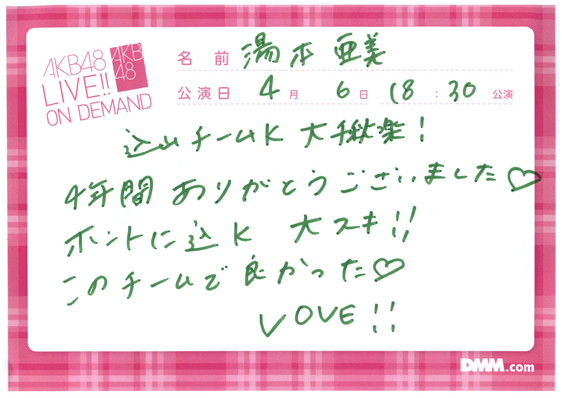 AKB48
LIVE!!
ON DEMAND
AKB
48
名前 湯本 亜美
公演日 4月 6日 18:30 公演
込山チームK 大千秋楽!
4年間 ありがとうございました♡
ホントに込K 大スキ!!
このチームで良かった♡
LOVE!!
DMM.com